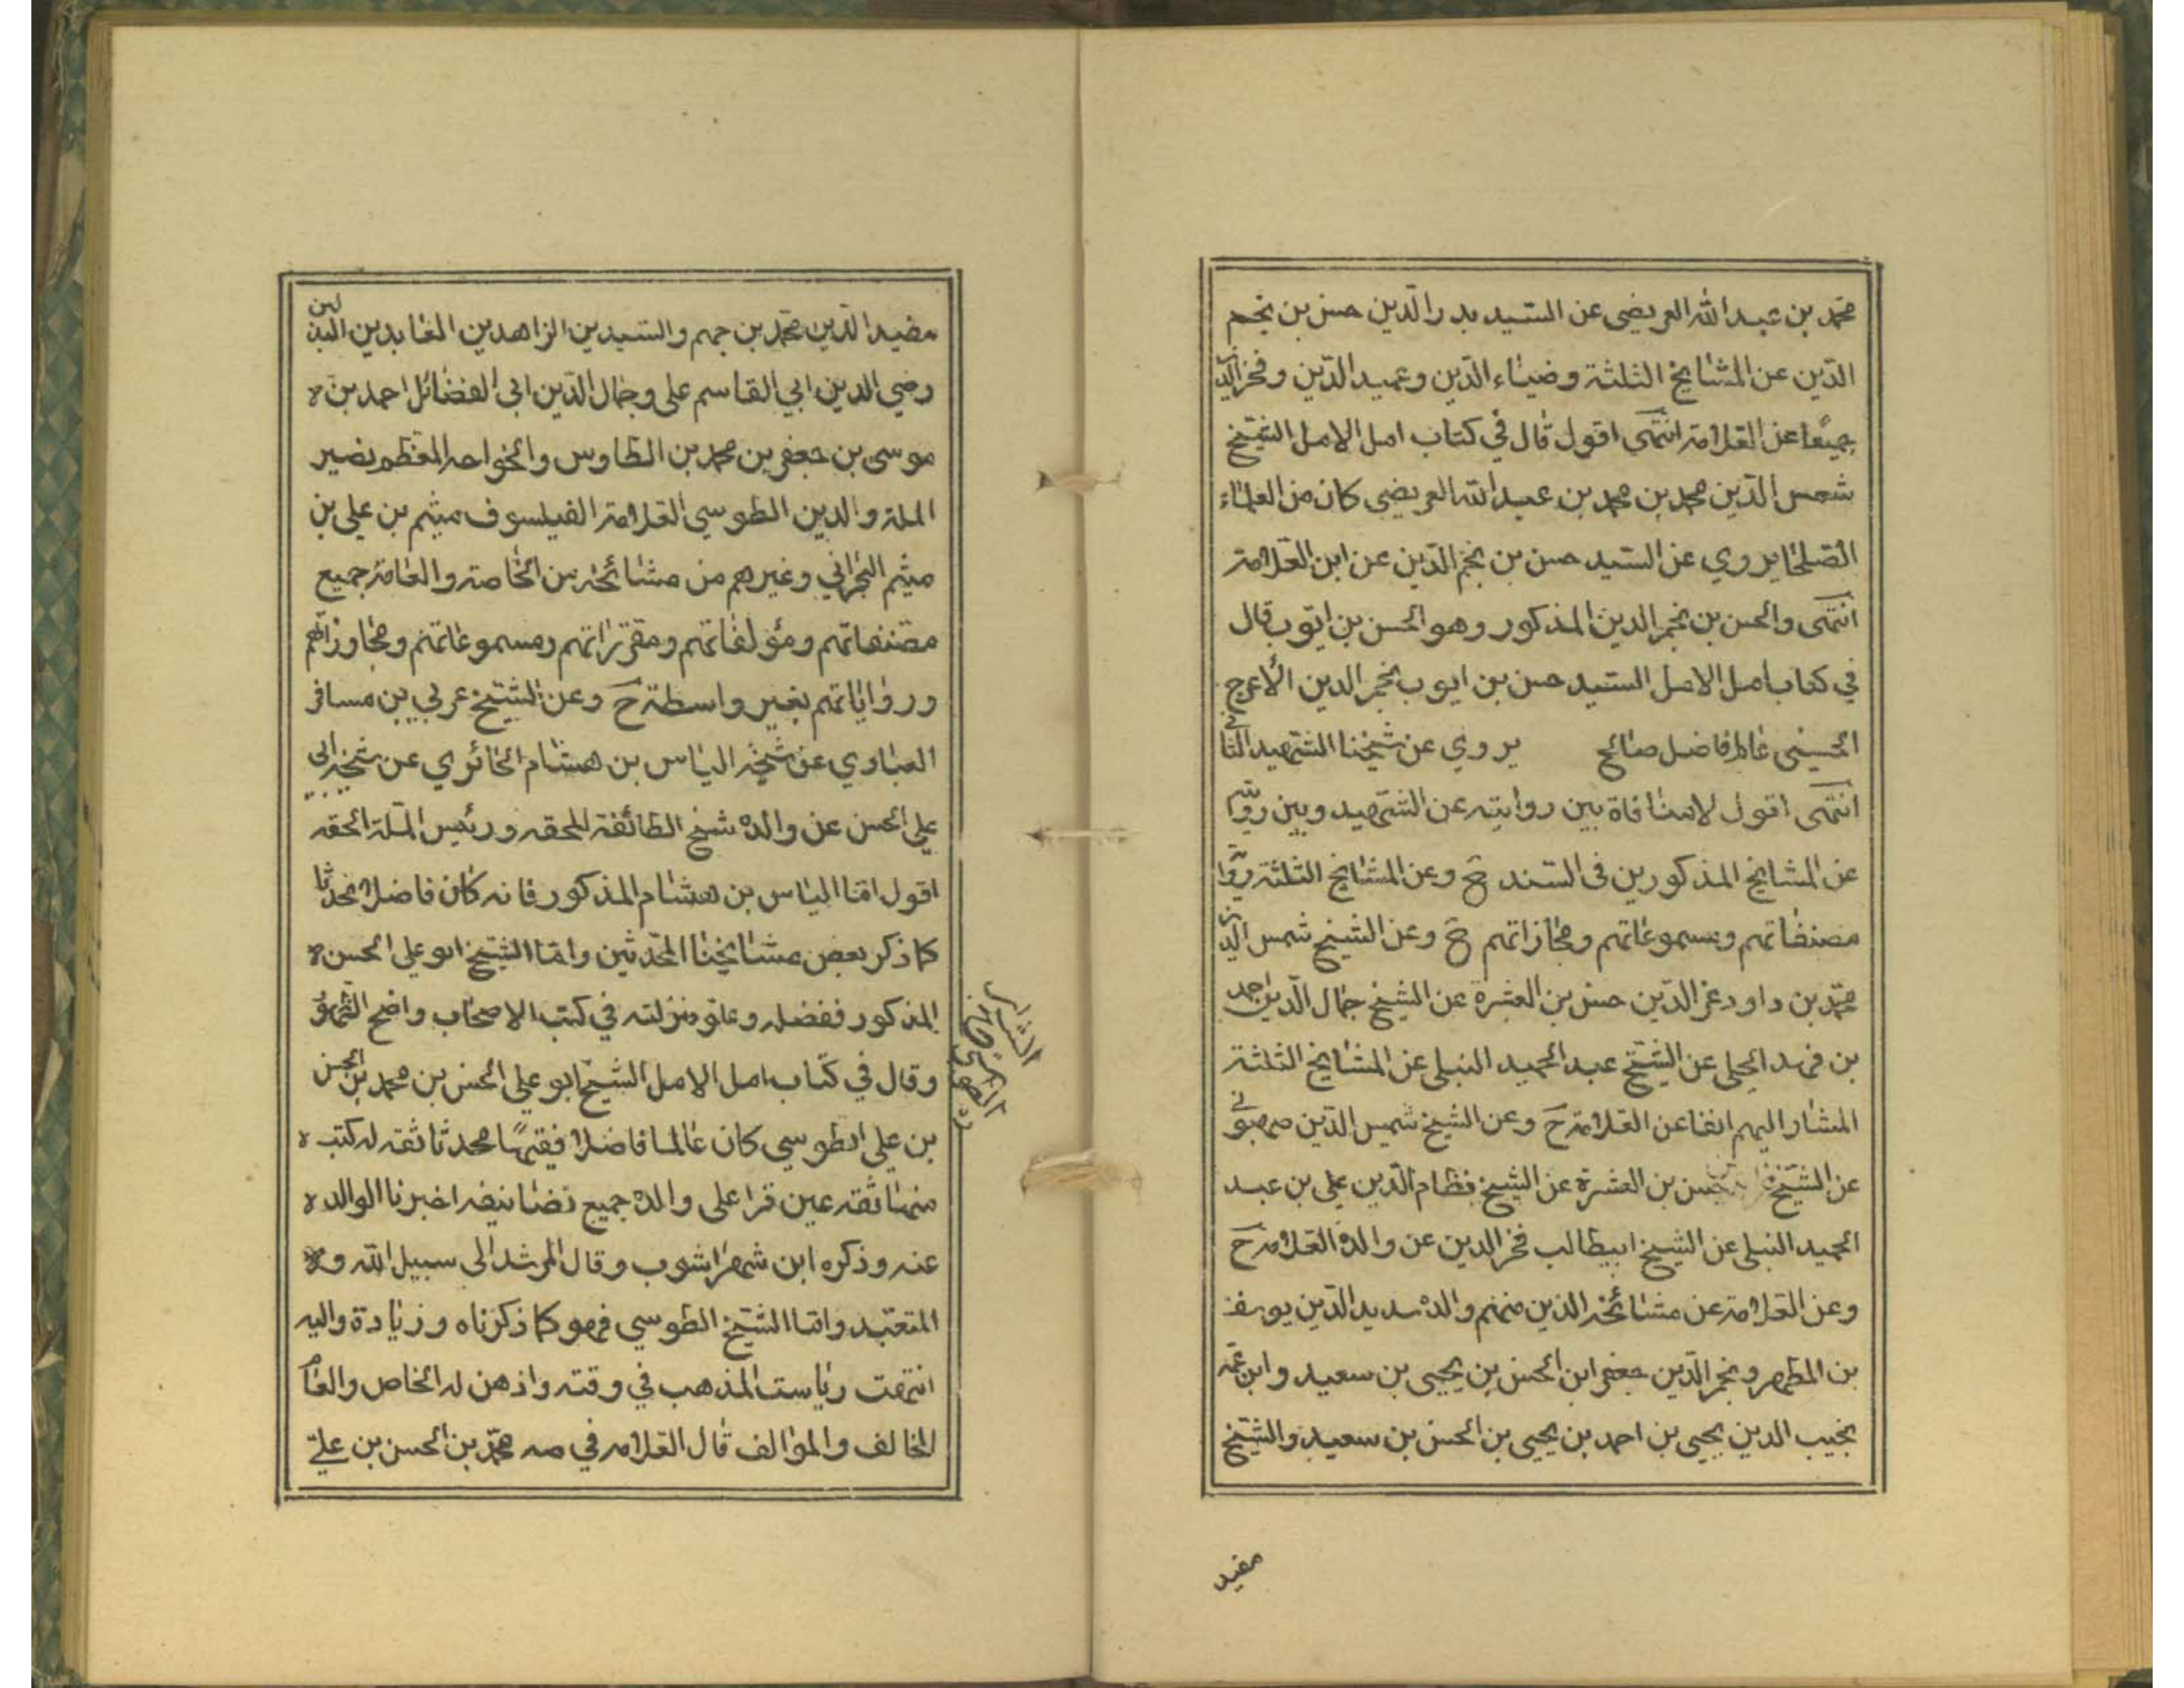 محمد بن عبد الله العريضي عن السيد بدر الدين حسن بن نجم
الدين عن المشايخ الثلثة وضياء الدين وعميد الدين وفخر الدين
جميعا عن العلامة انتهى اقول قال في كتاب امل الامل الشيخ
شمس الدين محمد بن محمد بن عبد الله العريضي كان من العلماء
الصلحا يروي عن السيد حسن بن نجم الدين عن ابن العلامة
انتهى والحسن بن نجم الدين المذكور وهو الحسن بن ايوب قال
في كتاب امل الامل السيد حسن بن ايوب نجم الدين الأعرج
الحسيني عالم فاضل صالح يروي عن شيخنا الشهيد الثاني
انتهى اقول لا منافاة بين روايته عن الشهيد وبين روايته
عن المشايخ المذكورين في السند ح وعن المشايخ الثلثة
مصنفاتهم ومسموعاتهم ومجازاتهم ح وعن الشيخ شمس الدين
محمد بن داود عز الدين حسن بن العشرة عن الشيخ جمال الدين احمد
بن فهد الحلي عن الشيخ عبد الحميد النيلي عن المشايخ الثلثة
المشار اليهم انفا عن العلامة ح وعن الشيخ شمس الدين
عن الشيخ حسن بن العشرة عن الشيخ نظام الدين علي بن عبد
الحميد النيلي عن الشيخ ابيطالب فخر الدين عن والده العلامه ح
وعن العلامة عن مشائخه الذين منهم والده سديد الدين يوسف
بن المطهر ونجم الدين جعفر ابن الحسن بن يحيى بن سعيد وابن عمه
نجيب الدين يحيى بن احمد بن يحيى بن الحسن بن سعيد والشيخ
مفيد
مفيد الدين محمد بن جهم والسيدين الزاهدين العابدين البدلين
رضي الدين ابي القاسم علي وجمال الدين ابي الفضائل احمد بن
موسى بن جعفر بن محمد بن الطاوس والخواجه المعظم نصير
الملة والدين الطوسي العلامة الفيلسوف ميثم بن علي بن
ميثم البحراني وغيرهم من مشائخه من الخاصة والعامة جميع
مصنفاتهم ومؤلفاتهم ومقرراتهم ومسموعاتهم ومجاوزاتهم
ورواياتهم بغير واسطة ح وعن الشيخ عربي بن مسافر
العبادي عن شيخه الياس بن هشام الحائري عن شيخه ابي
علي الحسن عن والده شيخ الطائفة المحقه ورئيس الملة الحقه
اقول اما الياس بن هشام المذكور فانه كان فاضلا محدثا
كما ذكر بعض مشايخنا المحدثين واما الشيخ ابو علي الحسن
المذكور ففضله وعلو منزلته في كتب الاصحاب واضح الظهور
وقال في كتاب امل الامل الشيخ ابو علي الحسن بن محمد بن الحسن
بن علي الطوسي كان عالما فاضلا فقيها محدثا ثقه له كتب
منها ثقه عين قرا على والده جميع تصانيفه اخبرنا الوالد
عنه وذكره ابن شهراشوب وقال المرشد الى سبيل الله و
المتعبد واما الشيخ الطوسي فهو كما ذكرناه وزيادة واليه
انتهت رياست المذهب في وقته واذهن له الخاص والعام
المخالف والموالف قال العلامه في صه محمد بن الحسن بن علي